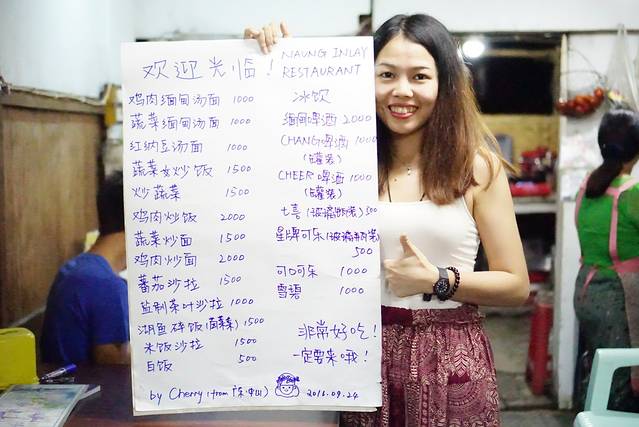 欢迎光临！
NAUNG INLAY
RESTAURANT
鸡肉缅甸汤面 1000
蔬菜缅甸汤面 1000
红纳豆汤面 1000
蔬菜炒饭 1500
炒蔬菜 1500
鸡肉炒饭 2000
蔬菜炒面 1500
鸡肉炒面 2000
蕃茄沙拉 1500
监制茶叶沙拉 1000
湖鱼碎饭 1500
米饭沙拉 1500
白饭 500
冰饮
缅甸啤酒 2000
CHANG啤酒 1000
(罐装)
CHEER啤酒 1000
(罐装)
七喜(玻璃瓶装) 500
星牌可乐(玻璃瓶装)
500
可口可乐 1000
雪碧 1000
非常好吃！
一定要来哦！
by Cherry (from 广东 中山) 2016.09.24